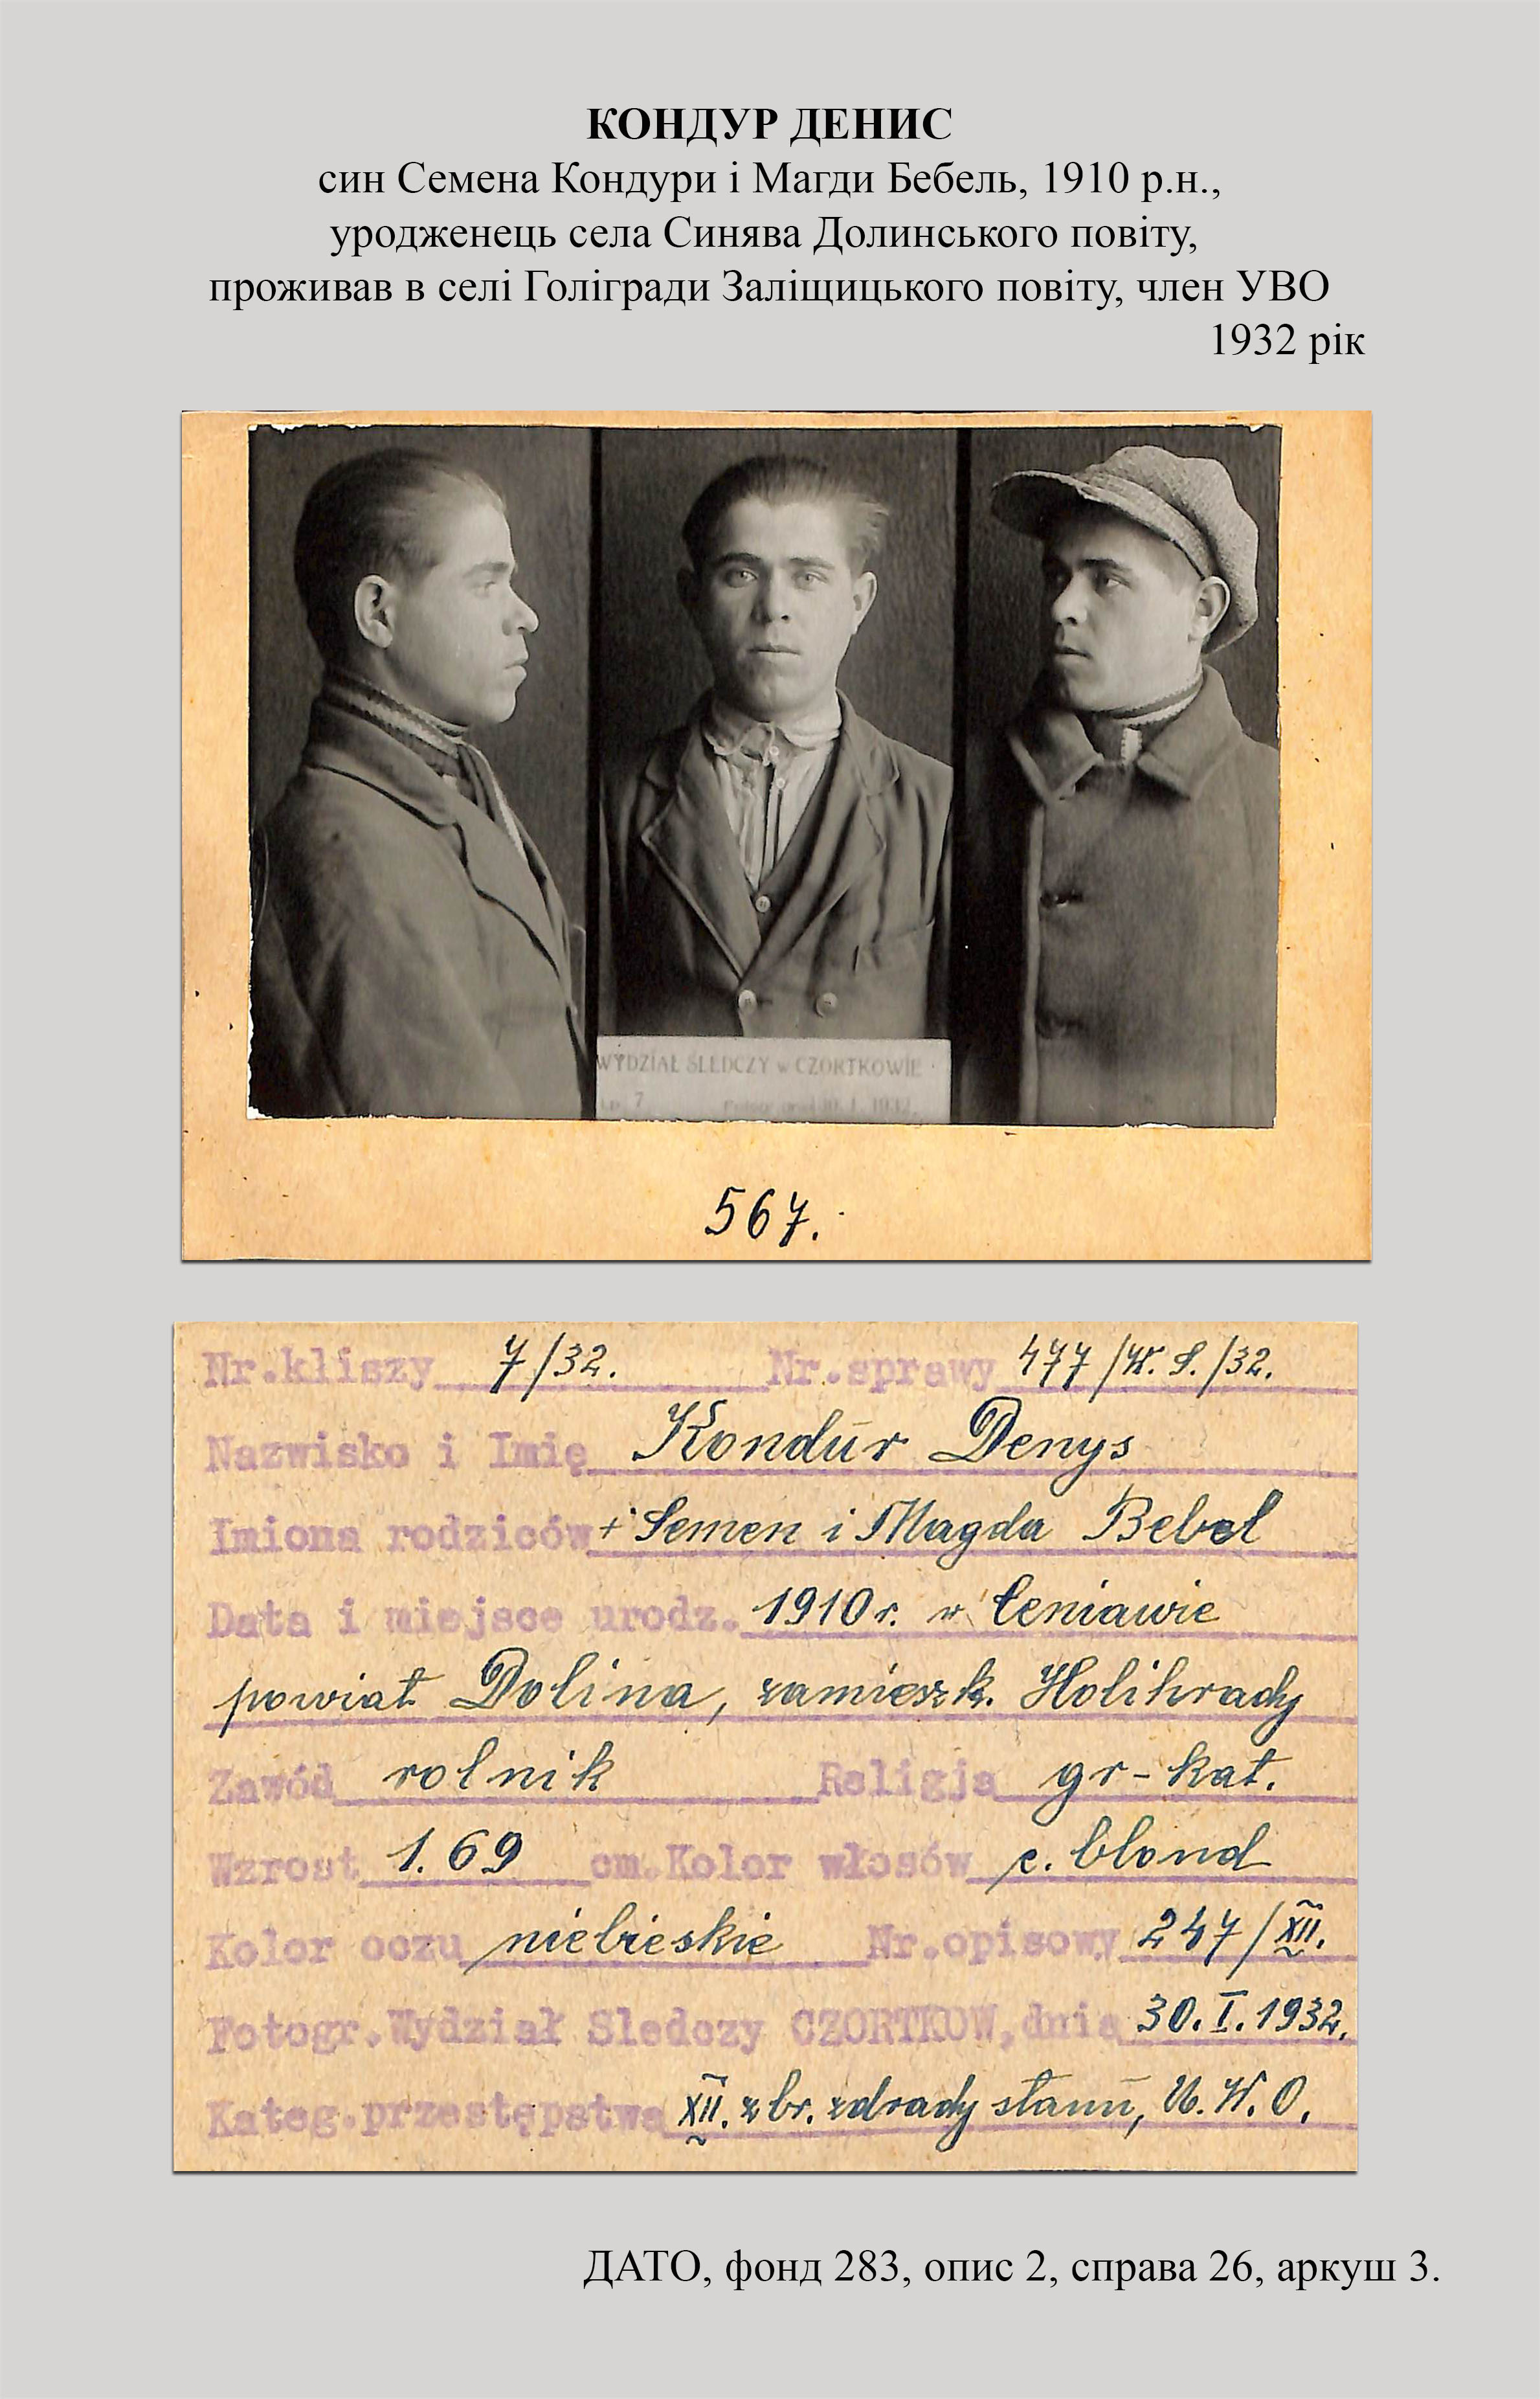 КОНДУР ДЕНИС
син Семена Кондури і Магди Бебель, 1910 р.н.,
уродженець села Синява Долинського повіту,
проживав в селі Голігради Заліщицького повіту, член УВО
1932 рік
WYDZIAŁ ŚLEDCZY w CZORTKOWIE
Lp. 7 30. I. 1932.
567.
Nr.kliszy 7/32. Nr.sprawy 477/W.S./32.
Nazwisko i Imię Kondur Denys
Imiona rodziców + Semen i Magda Bebel
Data i miejsce urodz. 1910 r. w Ceniawie
powiat Dolina, zamieszk. Holihrady
Zawód rolnik Religja gr-kat.
Wzrost 1.69 cm.Kolor włosów c. blond
Kolor oczu niebieskie Nr.opisowy 247/XII.
Fotogr.Wydział Sledczy CZORTKOW,dnia 30.I.1932.
Kateg.przestępstwa XII. zbr. zdrady stanu, U.W.O.
ДАТО, фонд 283, опис 2, справа 26, аркуш 3.